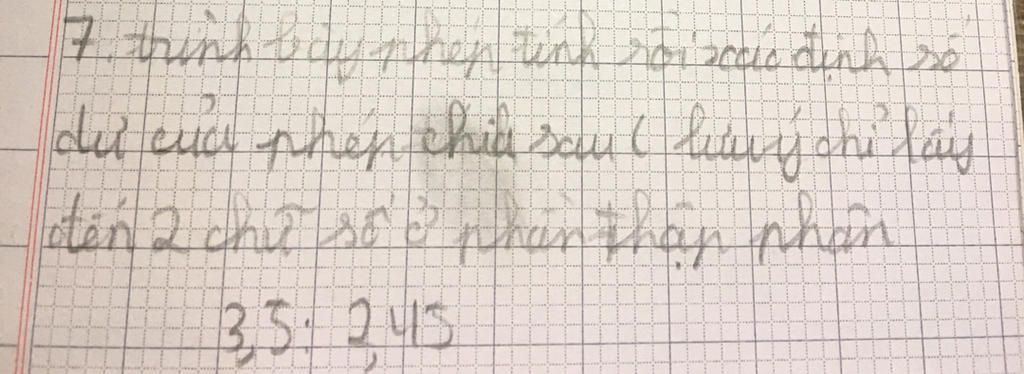 7. trình bày phép tính rồi xác định số
dư của phép chia sau ( lưu ý chỉ lấy
đến 2 chữ số ở phần thập phân
3,5 : 2,45